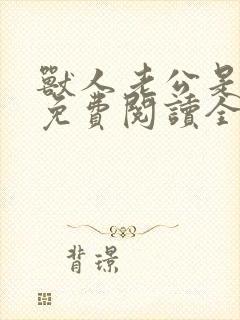 獸人老公是
免費閱讀全
背璟